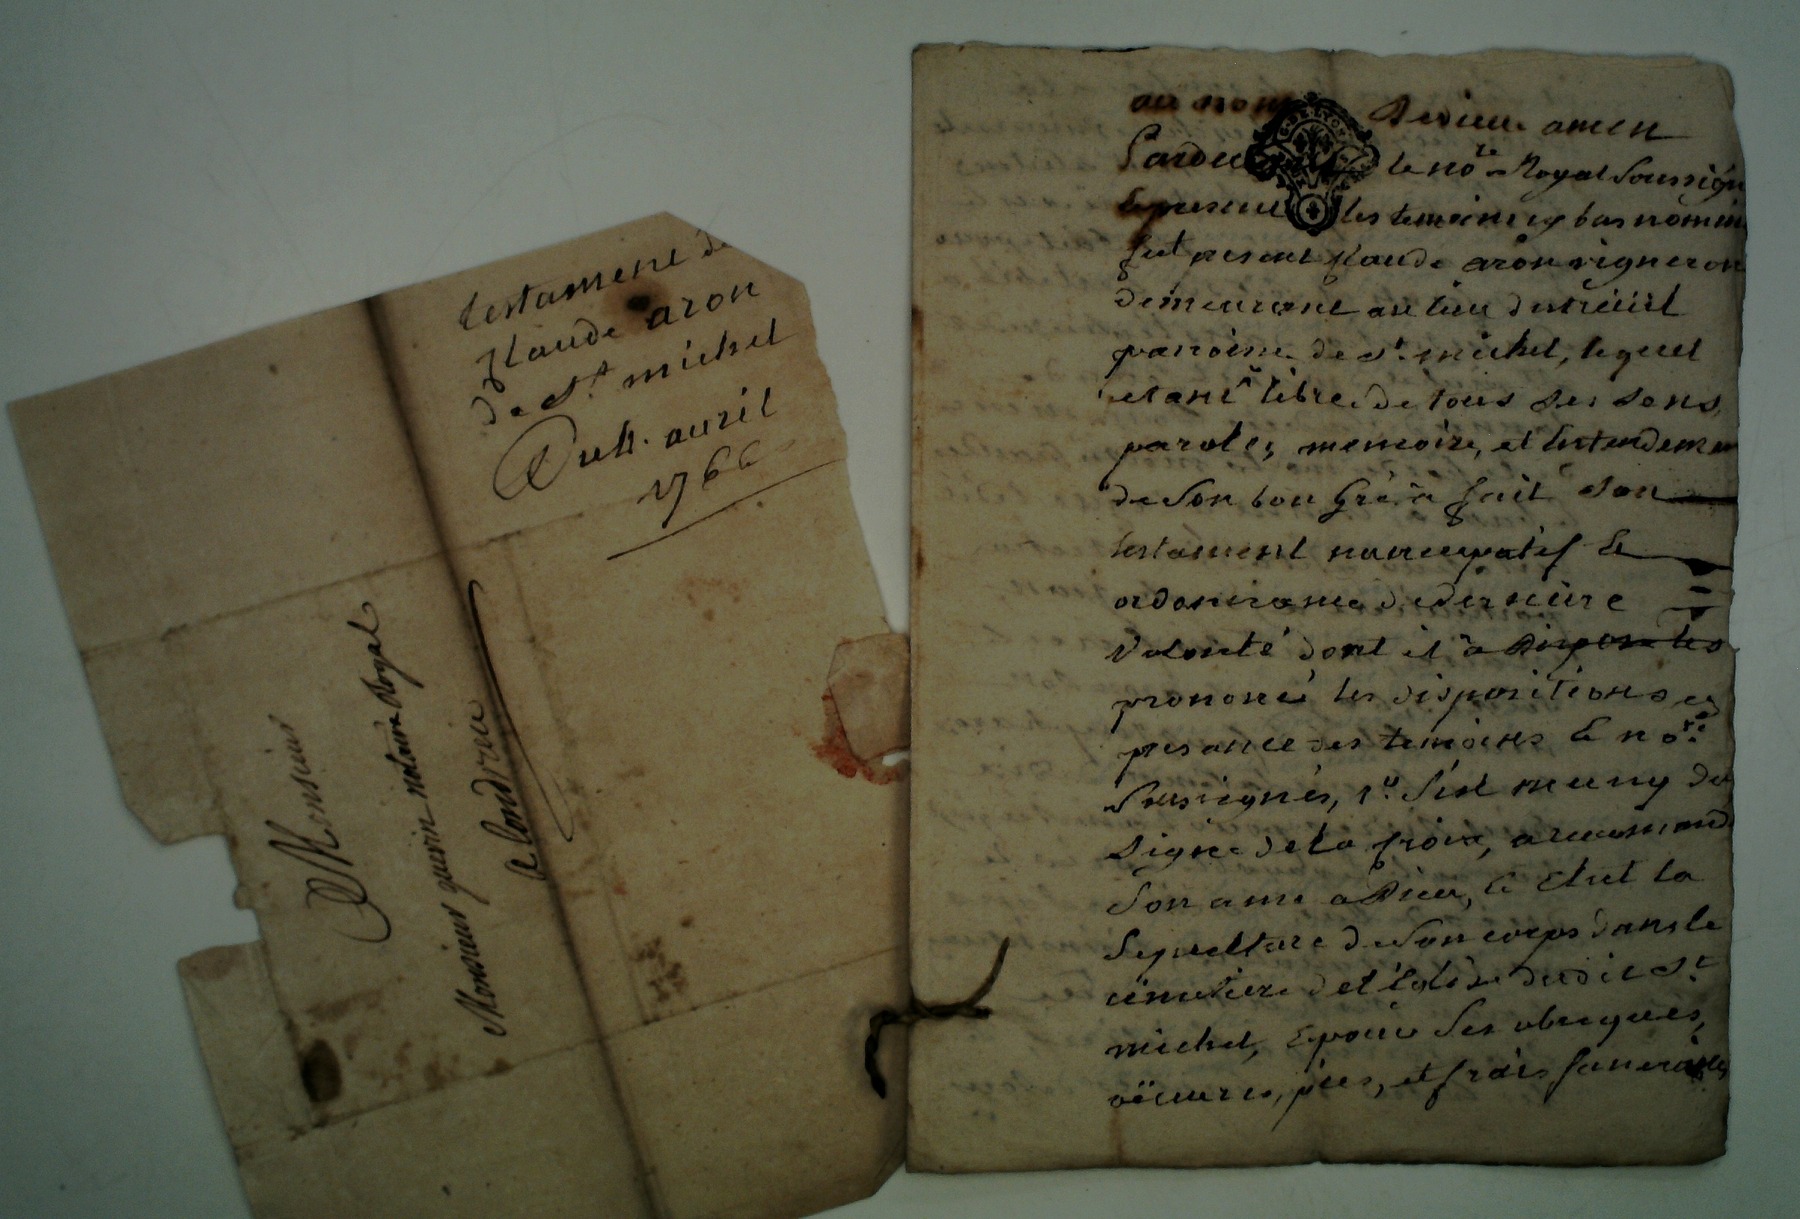 testament de
glaude aron
de St. michel
Du 4. auril
1766
Monsieur
Monsieur guerin notaire Royal
a Condrieu
au nom De dieu amen
Pardeuant le nore Royal Soussigné
Le presence les temoins cy bas nommé
fut present glaude aron vigneron
demeurant au lieu dutreüil
parroisse de St. michel, lequel
etant libre de tous ses sens
parole, memoire, et Entendemen
de Son bon Gré à fait Son
testament nuncupatif Et
ordonnance de derniere
Volonté dont il à
prononcé les dispositions en
presance des temoins Et nore.
Soussignés, 1o. S'est muny du
Signe de la Croix, a recommandé
Son ame a Dieu, Et Elut la
Sepulture de Son corps dans le
cimetiere de l'Eglise dudit St.
michel, Epour Ses obseques,
oeuures, pies, et frais funerailles